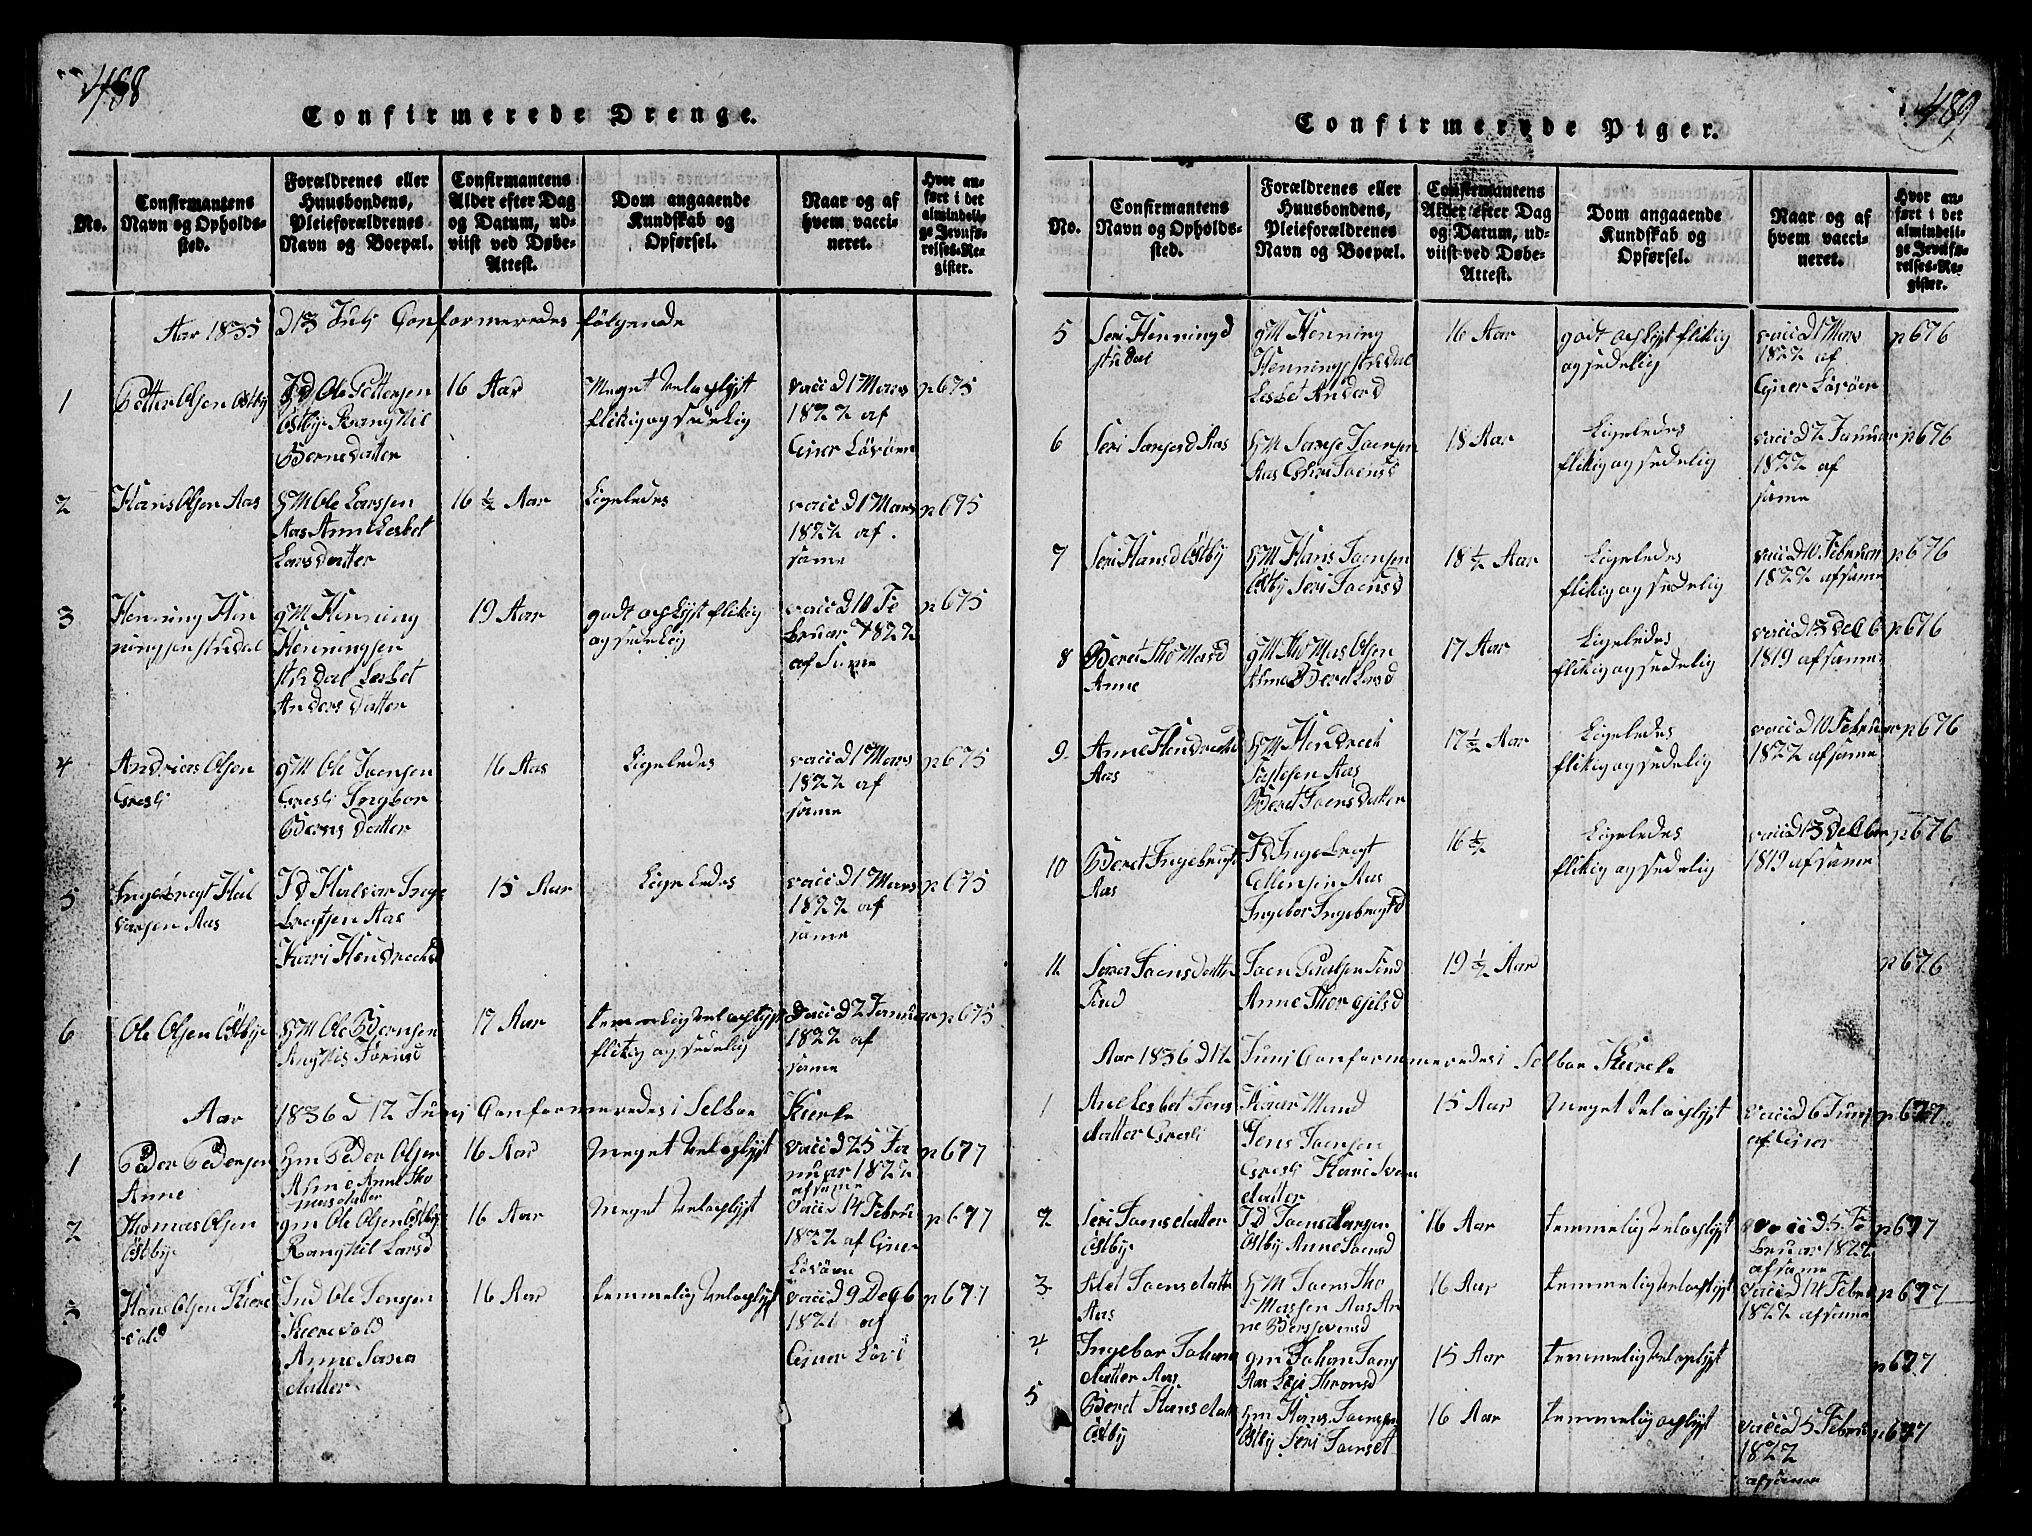 488
Confirmerede Drenge.
No.
Confirmantens
Navn og Opholds-
sted.
Forældrenes eller
Huusbondens,
Pleieforældrenes
Navn og Boepæl.
Confirmantens
Alder efter Dag
og Datum, ud-
viist ved Døbe-
Attest.
Dom angaaende
Kundskab og
Opførsel.
Naar og af
hvem vacci-
neret.
Hvor an-
ført i det
almindeli-
ge Jevnfø-
relses-Re-
gister.
Aar 1835 d 13 Julj Conformeredes følgende
1
Petter Olsen Østby
Id Ole Pettersen
Østby Rangnil
Berns datter
16 Aar
Meget vel oplyst
flikig og sedelig
vaci d 1 Mars
1822 af
Ejner Løvøen
p 675
2
Hans Olsen Aas
HM Ole Larssen
Aas Anne Lesbet
Lars datter
16 ½ Aar
Ligeledes
vaci d 1 Mars
1822 af
same
p 675
3
Henning Hen
ningsen stuedal
gM Henning
Henningsen
stuedal Lesbet
Anders Datter
19 Aar
godt oplyst flikig
og sedelig
vaci d 10 Fe
bruar 1822
af same
p 675
4
Andrias Olsen
Gresli
gM Ole Joensen
Gresli Ingbor
Berns datter
16 Aas
Ligeledes
vaci d 1 Mars
1822 af
same
p 675
5
Ingebregt Hal
varsen Aas
Id Halvar Inge
bregtsen Aas
Kari Hendrechsd
15 Aar
Ligeledes
vaci d 1 Mars
1822 af
same
p 675
6
Ole Olsen Østby
HM Ole Bernsen
17 Aar
temmelig vel oplyst
flikig og sedelig
vaci d 2 Januar
1822 af
same
p 675
Aar 1836 d 12 Junj Conformeredes i Selboe Kierke
1
Peder Pedersen
Aune
Hm Peder Olsen
Aune Anne Tho
masdatter
16 Aar
Meget vel oplyst
vaci d 25 Ja
nuar 1822
af same
p 677
2
Thomas Olsen
Østby
gm Ole Olsen Østby
Rangnil Larsd
16 Aar
Meget vel oplyst
vaci d 14 Febru
1822 af Ejner
Løvøen
p 677
3
Hans Olsen Kierk
vold
Ind Ole Jensen
Kierevold
Anne Jons
datter
16 Aar
temmelig vel oplyst
vaci d 9 Degb
1821 af
Ejner Løvø
p 677
489
Confirmerede Piger.
No.
Confirmantens
Navn og Opholds-
sted.
Forældrenes eller
Huusbondens,
Pleieforældrenes
Navn og Boepæl.
Confirmantens
Alder efter Dag
og Datum, ud-
viist ved Døbe-
Attest.
Dom angaaende
Kundskab og
Opførsel.
Naar og af
hvem vacci-
neret.
Hvor an-
ført i det
almindeli-
ge Jevnfø-
relses-Re-
gister.
5
Seri Henningd
stuedal
gM Henning
Henningsen stuedal
Lesbet Andersd
16 Aar
godt oplyst flikig
og sedelig
vaci d 1 Mars
1822 af
Ejner Løvøen
p 676
6
Aas
18 Aar
Ligeledes
flikig og sedelig
vaci d 2 Januar
1822 af
same
p 676
7
Seri Hansd Østby
HM Hans Joensen
Østby Seri Joensd
18 ½ Aar
Ligeledes
flikig og sedelig
vaci d 10 Februar
1822 af same
p 676
8
Beret Thomasd
Aune
gM Thomas Olsen
Aune Beret Larsd
17 Aar
Ligeledes
flikig og sedelig
vaci d 13 Decb
1819 af same
p 676
9
Anne Hendrechsd
Aas
HM Hendrech
Aas
Beret Joens datter
17 ½ Aar
Ligeledes
flikig og sedelig
vaci d 10 Februar
1822 af same
p 676
10
Beret Ingebregtsd
Aas
Id Ingebregt
Ellensen Aas
Ingebor Ingebregtsd
16 ½
Ligeledes
flikig og sedelig
vaci d 13 Decber
1819 af same
p 676
11
Joens datter
Joen Paalsen
Anne Thorgilsd
19 ½ Aar
p 676
Aar 1836 d 12 Junj Conformeredes i Selboe Kierke
1
Ane Lesbet Jens
datter Gresli
Jens Joensen
Gresli
datter
15 Aar
Meget vel oplyst
vaci d 6 Junj
af Ejner
p 677
2
Seri Joens datter
Østby
Id Joen Larsen
Østby Anne Joensd
16 Aar
temmelig vel oplyst
vaci d 5 Fe
bruar 1822
af same
p 677
3
Joens datter
Aas
HM Joens Tho
massen Aas An
ne
16 Aar
temmelig vel oplyst
vaci d 14 Febru
1822 af same
p 677
4
Ingebor Johans
datter Aas
gm Johan
Aas
15 Aar
temmelig vel oplyst
p 677
5
Beret Hans datt
Østby
Hm Hans Joensen
Østby Seri Joensdt
16 Aar
temmelig oplyst
vaci d 5 Febru
1822
af same
p 677